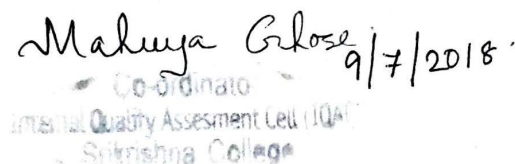 Mahuya Ghose
9/7/2018.
Co-ordinato
Internal Quality Assesment Cell (IQA
Srikrishna College